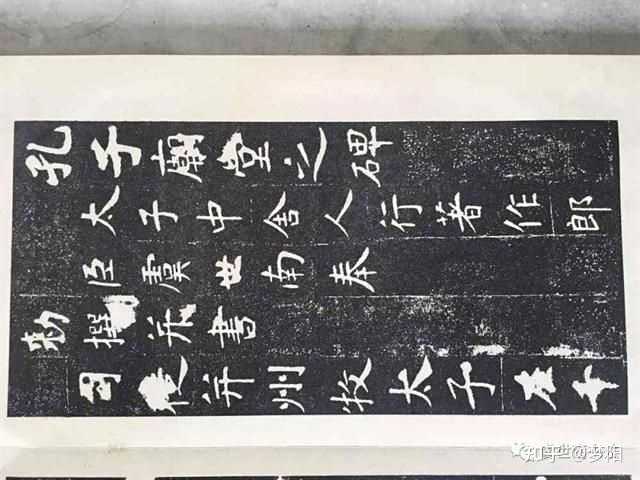 孔子廟堂之碑
太子中舍人行著作郎
臣虞世南奉
勅撰并書
司徒并州牧太子左千
知乎